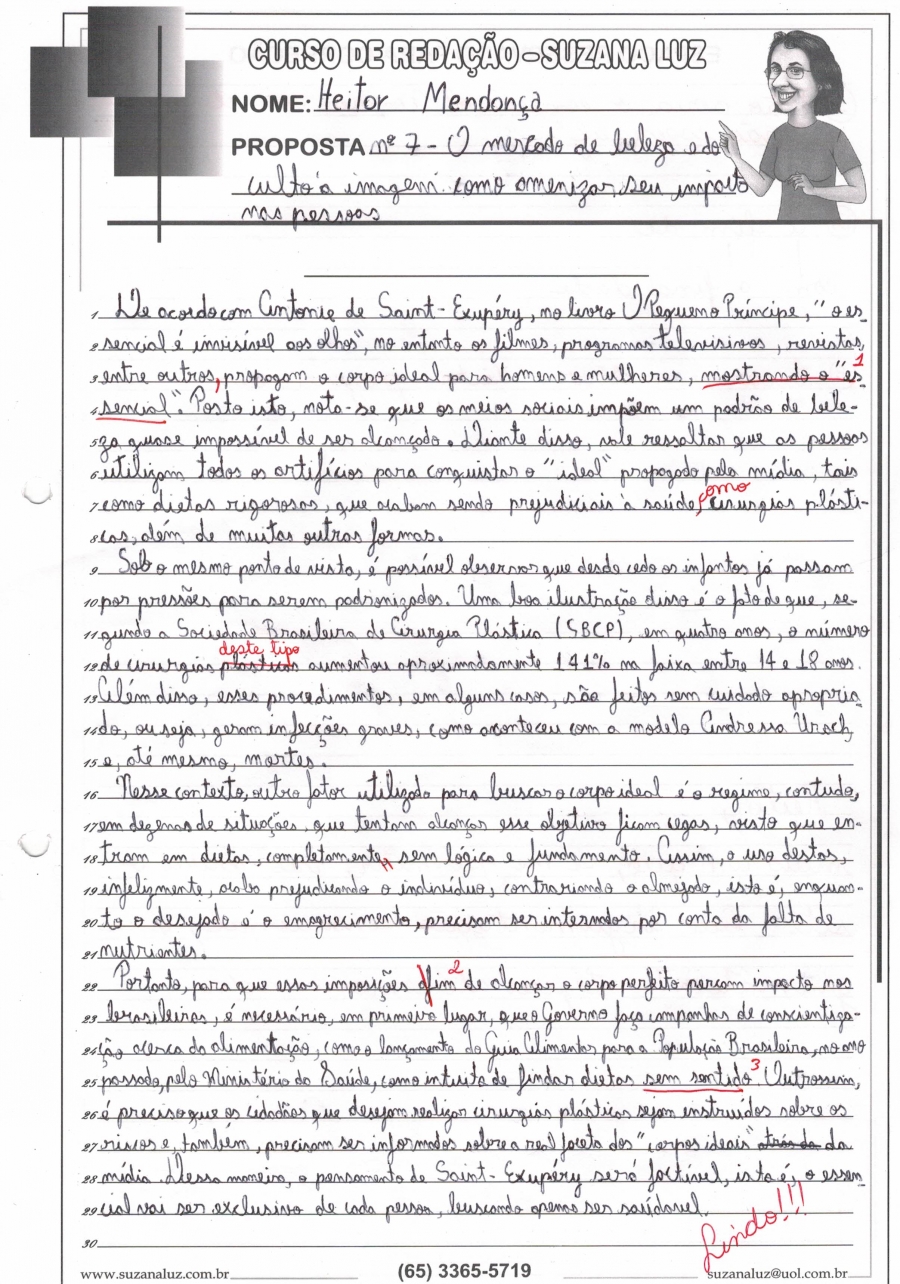 CURSO DE REDAÇÃO - SUZANA LUZ
NOME: Heitor Mendonça
PROPOSTA nº 7 - O mercado de beleza e do
culto à imagem: como amenizar seu impacto
nas pessoas
1 De acordo com Antonie de Saint-Exupéry, no livro O Pequeno Príncipe, "o es
2 sencial é invisível aos olhos", no entanto os filmes, programas televisivos, revistas,
3 entre outros, propagam o corpo ideal para homens e mulheres, mostrando o "es 1
4 sencial". Posto isto, nota-se que os meios sociais impõem um padrão de bele-
5 za quase impossível de ser alcançado. Diante disso, vale ressaltar que as pessoas
6 utilizam todos os artifícios para conquistar o "ideal" propagado pela mídia, tais
7 como dietas rigorosas, que acabam sendo prejudiciais à saúde, como cirurgias plásti-
8 cas, além de muitas outras formas.
9 Sob o mesmo ponto de vista, é possível observar que desde cedo os infantos já passam
10 por pressões para serem padronizados. Uma boa ilustração disso é o fato de que, se-
11 gundo a Sociedade Brasileira de Cirurgia Plástica (SBCP), em quatro anos, o número
deste tipo
12 de cirurgias plásticas aumentou aproximadamente 141% na faixa entre 14 e 18 anos.
13 Além disso, esses procedimentos, em alguns casos, são feitos sem cuidado apropria
14 do, ou seja, geram infecções graves, como aconteceu com a modelo Andressa Urach,
15 e, até mesmo, mortes.
16 Nesse contexto, outro fator utilizado para buscar o corpo ideal é o regime, contudo,
17 em dezenas de situações, que tentam alcançar esse objetivo ficam cegas, visto que en-
18 tram em dietas, completamente, sem lógica e fundamento. Assim, o uso destas,
19 infelizmente, acaba prejudicando o indivíduo, contrariando o almejado, isto é, enquan-
20 to o desejado é o emagrecimento, precisam ser internados por conta da falta de
21 nutrientes.
22 Portanto, para que essas imposições afim 2 de alcançar o corpo perfeito percam impacto nos
23 brasileiros, é necessário, em primeiro lugar, que o Governo faça campanhas de conscientiza-
24 ção acerca da alimentação, como o lançamento do Guia Alimentar para a População Brasileira, no ano
25 passado, pelo Ministério da Saúde, com o intuito de findar dietas sem sentido 3. Outrossim,
26 é preciso que os cidadãos que desejam realizar cirurgias plásticas sejam instruídos sobre os
27 riscos e, também, precisam ser informados sobre a real faceta dos "corpos ideais" atrás da da
28 mídia. Dessa maneira, o pensamento de Saint-Exupéry será factível, isto é, o essen
29 cial vai ser exclusivo de cada pessoa, buscando apenas ser saudável.
Lindo!!!
30
www.suzanaluz.com.br (65) 3365-5719 suzanaluz@uol.com.br